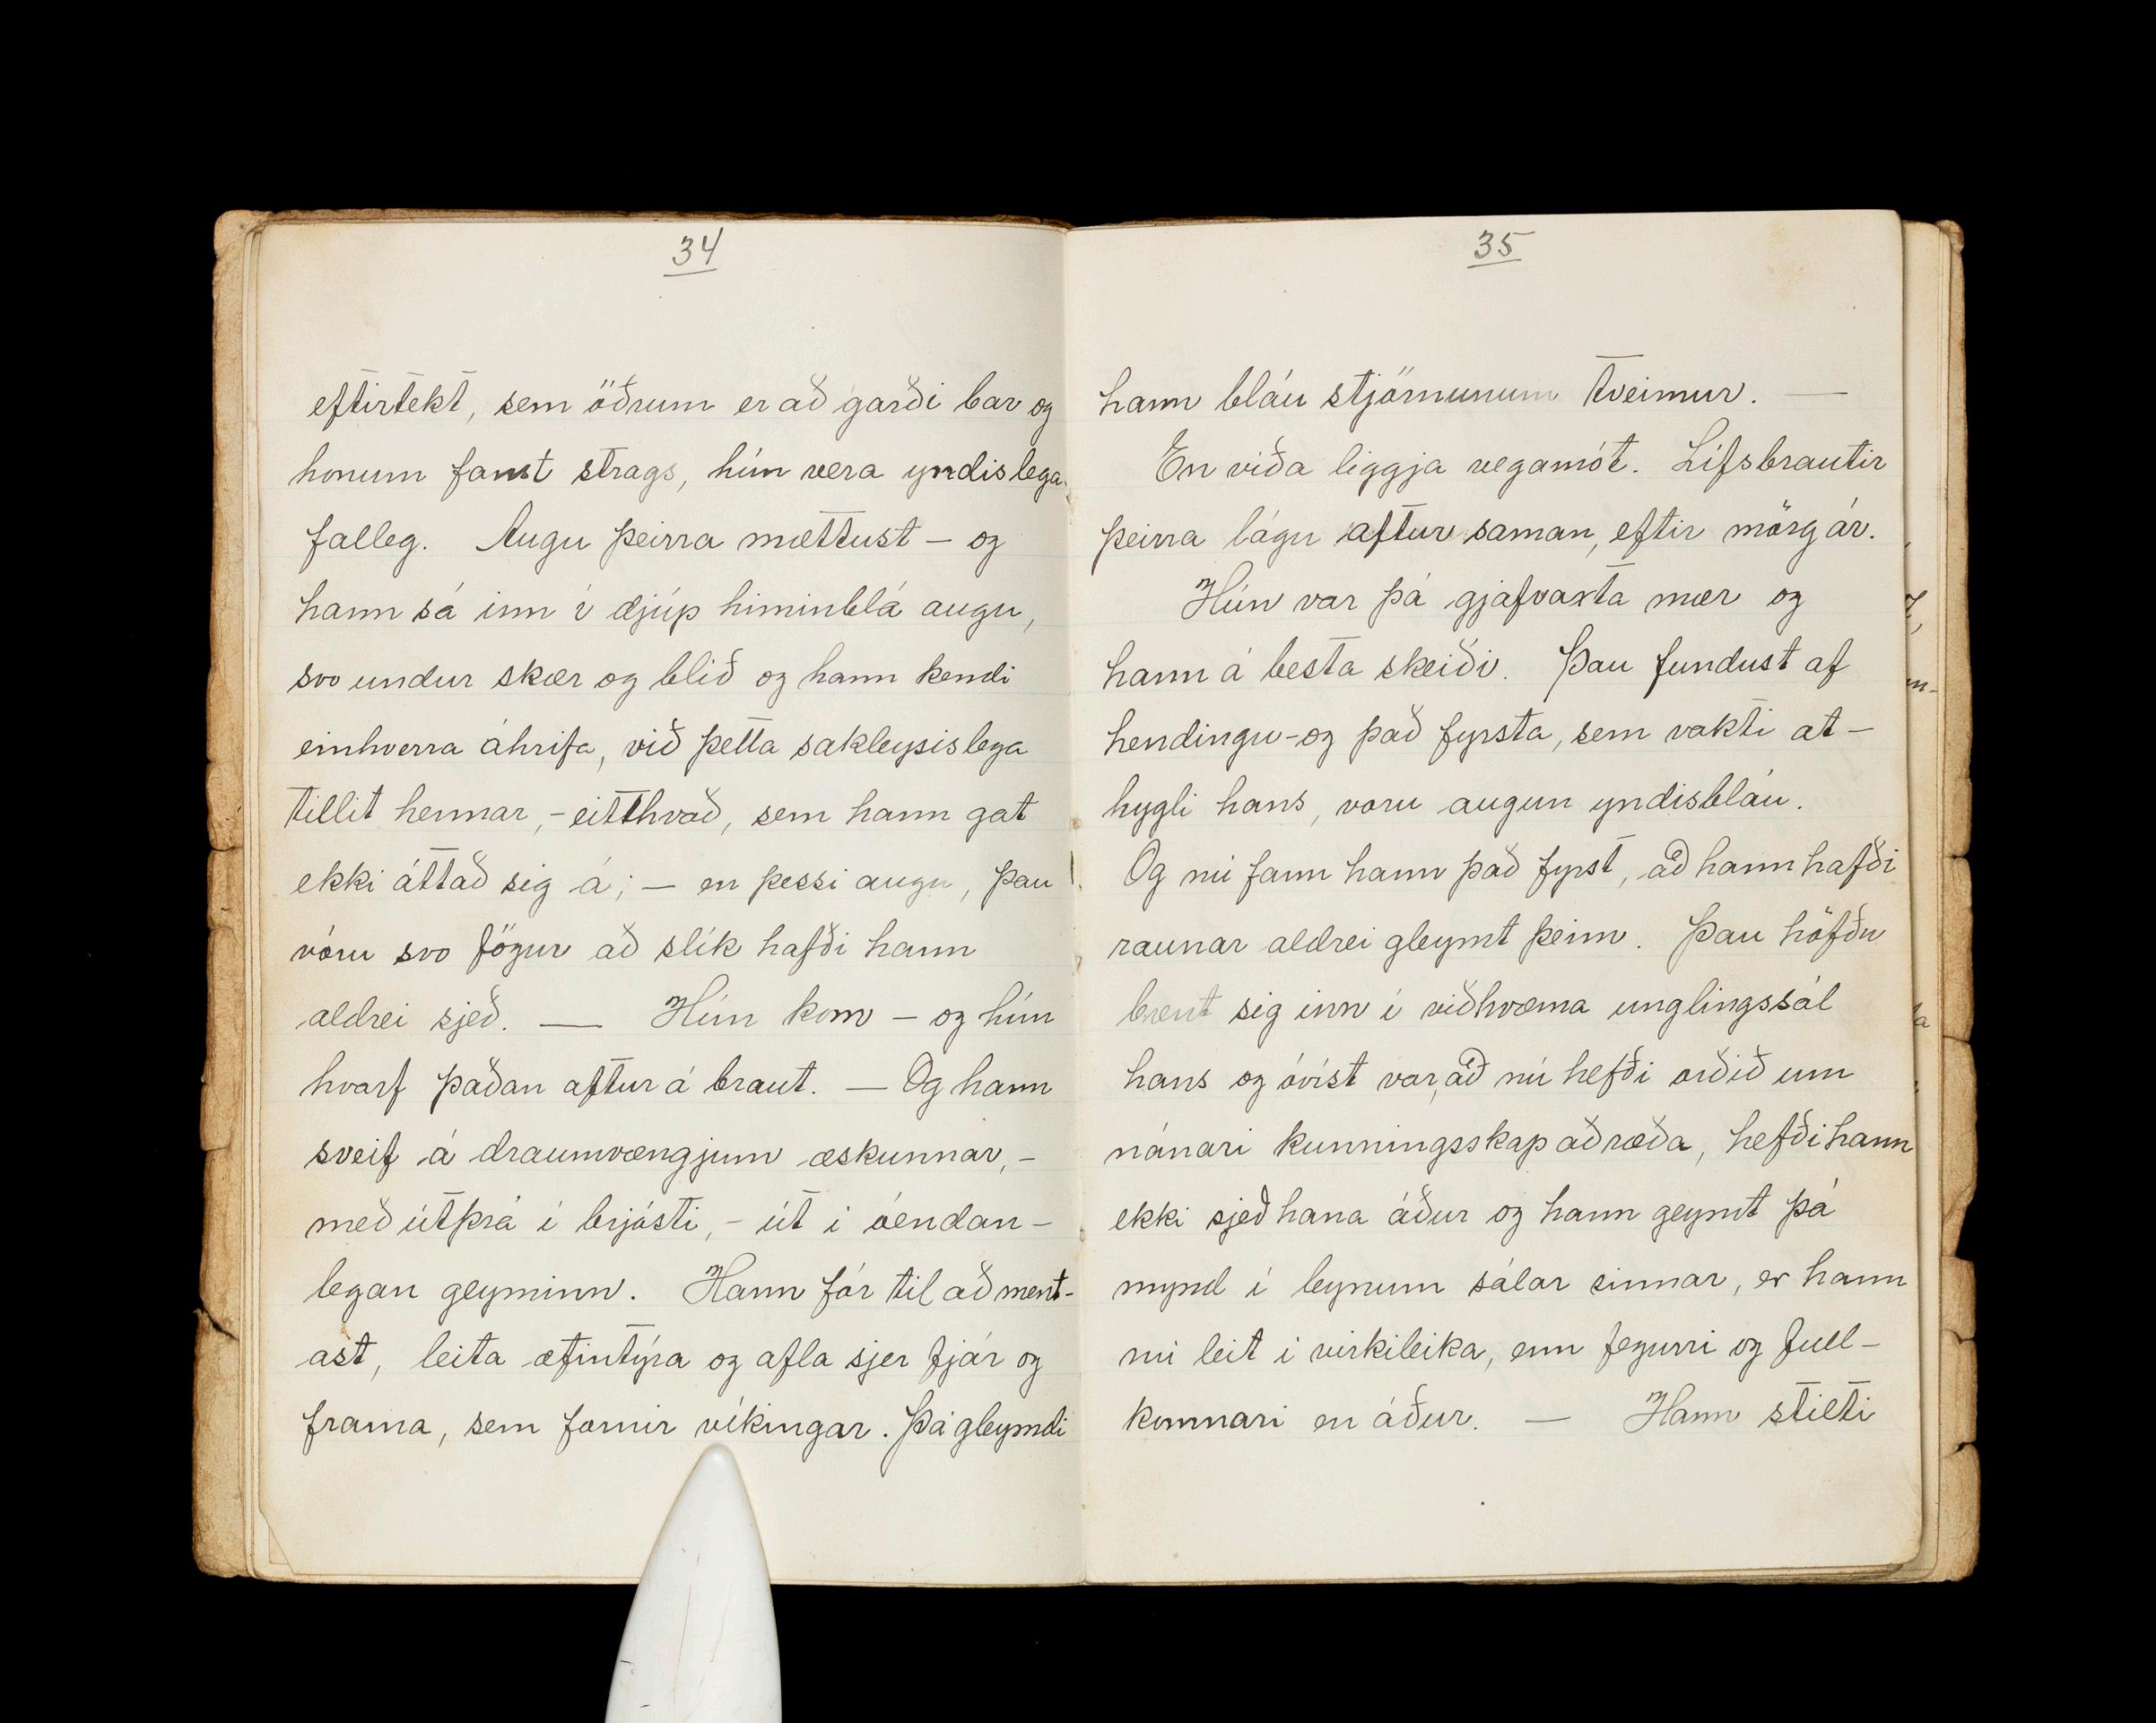 34
eftirtekt, sem öðrum er að garði bar og
honum fanst strags, hún vera yndislega
falleg. Augu þeirra mættust — og
hann sá inn í djúp himinblá augu,
svo undur skær og blíð og hann kendi
einhverra áhrifa, við þetta sakleysislega
tillit hennar, - eitthvað, sem hann gat
ekki áttað sig á; — en þessi augu, þau
vóru svo fögur að slík hafði hann
aldrei sjeð. — Hún kom — og hún
hvarf þaðan aftur á braut. — Og hann
sveif á draumvængjum æskunnar, -
með útþrá í brjósti, - út í óendan-
legan geyminn. Hann fór til að ment-
ast, leita æfintýra og afla sjer fjár og
frama, sem fornir víkingar. Þá gleymdi
35
hann bláu stjörnunum tveimur. —
En víða liggja vegamót. Lífsbrautir
þeirra lágu aftur saman, eftir mörg ár.
Hún var þá gjafvaxta mær og
hann á besta skeiði. Þau fundust af
hendingu - og það fyrsta, sem vakti at-
hygli hans, voru augun yndisbláu.
Og nú fann hann það fyrst, að hann hafði
raunar aldrei gleymt þeim. Þau höfðu
brent sig inn í viðkvæma unglingssál
hans og óvíst var, að nú hefði orðið um
nánari kunningsskap að ræða, hefði hann
ekki sjeð hana áður og hann geymt þá
mynd í leynum sálar sinnar, er hann
nú leit í virkileika, enn fegurri og full-
komnari en áður. — Hann stilti